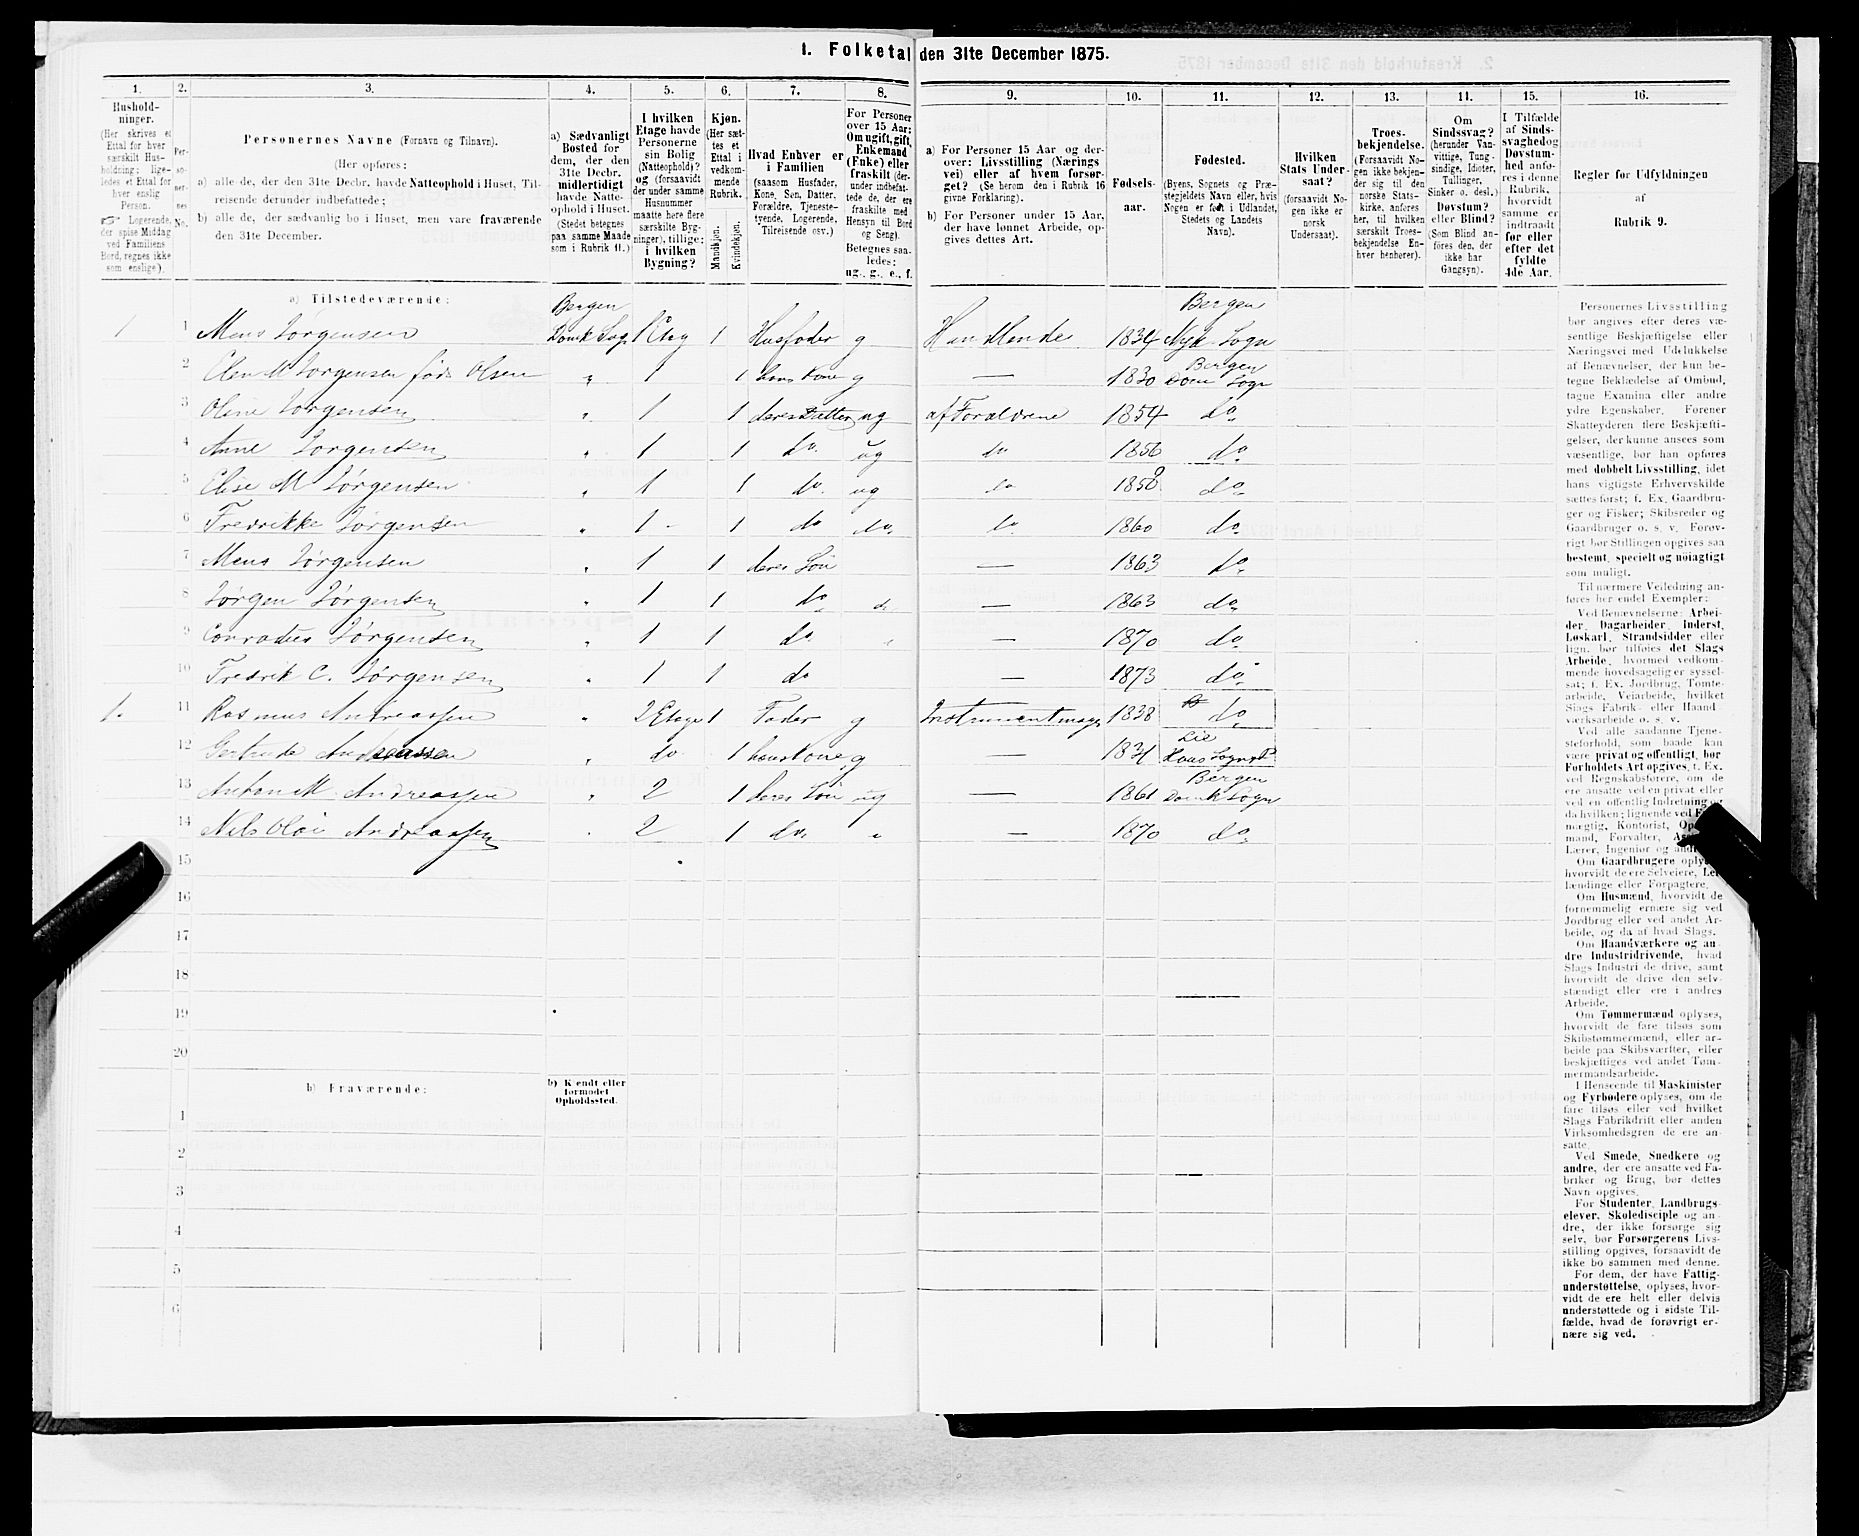 1. Folketal den 31te December 1875.
1. 2. 3. 4. 5. 6. 7. 8. 9. 10. 11. 12. 13. 14. 15. 16.
Hushold-
ninger.
(Her skrives et
Ettal for hver
særskilt Hus-
holdning; lige-
ledes et Ettal for
hver enslig
Person.
☞ Logerende,
der spise Middag
ved Familiens
Bord, regnes ikke
som enslige).
Per-
so-
ner-
nes
No.
Personernes Navne (Fornavn og Tilnavn).
(Her opføres:
a) alle de, der den 31te Decbr. havde Natteophold i Huset, Til-
reisende derunder indbefattede;
b) alle de, der sædvanlig bo i Huset, men vare fraværende
den 31te December.
a) Sædvanligt
Bosted for
dem, der den
31te Decbr.
midlertidigt
havde Natte-
ophold i Huset.
(Stedet betegnes
paa samme Maade
som i Rubrik 11.)
I hvilken
Etage havde
Personerne
sin Bolig
(Natteophold)?
og (forsaavidt
der under samme
Husnummer
maatte høre flere
særskilte Byg-
ninger), tillige:
i hvilken
Bygning?
Kjøn.
(Her sæt-
tes et
Ettal i
vedkom-
mende
Rubrik.
Mandkjøn.
Kvindekjøn.
Hvad Enhver er
i Familien
(saasom Husfader,
Kone, Søn, Datter,
Forældre, Tjeneste-
tyende, Logerende,
Tilreisende osv.)
For Personer
over 15 Aar:
Om ugift, gift,
Enkemand
(Enke) eller
fraskilt (der-
under indbefat-
tede de, der ere
fraskilte med
Hensyn til Bord
og Seng).
Betegnes saa-
ledes:
ug., g., e., f.
a) For Personer 15 Aar og der-
over: Livsstilling (Nærings
vei) eller af hvem forsør-
get? (Se herom den i Rubrik 16
givne Forklaring).
b) For Personer under 15 Aar,
der have lønnet Arbeide, op-
gives dettes Art.
Fødsels-
aar.
Fødested.
(Byens, Sognets og Præ-
stegjeldets Navn eller, hvis
Nogen er født i Udlandet,
Stedets og Landets
Navn).
Hvilken
Stats Under-
saat?
(forsaavidt No-
gen ikke er
norsk
Undersaat).
Troes-
bekjendelse.
(Forsaavidt No-
gen ikke bekjen-
der sig til den
norske Stats-
kirke, anføres
her, til hvilken
særskilt Troes-
bekjendelse En-
hver henhører).
Om
Sindssvag?
(herunder Van-
vittige, Tung-
sindige, Idioter,
Tullinger,
Sinker o. desl.)
Døvstum?
eller Blind?
(Som Blind an-
føres den, der
ikke har
Gangsyn).
I Tilfælde
af Sinds-
svaghed og
Døvstum-
hed anfø-
res i denne
Rubrik,
hvorvidt
samme er
indtraadt
før eller
efter det
fyldte
4de Aar.
Regler for Udfyldningen
af
Rubrik 9.
a) Tilstedeværende:
Bergen Bergen
1 1 Mens Jørgensen Domk Sogn 1 Etag 1 Husfader g Handlende 1834 Nyk. Sogn
Bergen
2 Elen M Jørgensen føds Olsen " 1 1 hans Kone g — 1830 Dom Sogn
3 Oline Jørgensen " 1 1 deres Datter ug af Forældrene 1854 do
4 Anne Jørgensen " 1 1 do. ug do 1856 do
5 Elise M Jørgensen " 1 1 do. ug do 1858 do
6 Fredrikke Jørgensen " 1 1 do do. do. 1860 do
7 Mens Jørgensen " 1 1 deres Søn — 1863 do
8 Jørgen Jørgensen " 1 1 do — 1863 do
9 Conradus Jørgensen " 1 1 do. — 1870 do
10 Fredrik C. Jørgensen " 1 1 do — 1873 do
1. 11 Rasmus Andreassen " 2 Etage 1 Fader g Instrumentmager 1838 do
12 Gertrude Andreassen " do. 1 hans Kone g — 1831 Haus Sogn
Bergen
13 Anton M. Andreassen " 2 1 deres Søn ug — 1861 Domk Sogn
14 Nils Olai Andreassen " 2 1 do. " — 1870 do
15
16
17
18
19
20
b) Fraværende:
b) Kendt eller
formodet
Opholdssted.
1
2
3
4
5
6
Personernes Livsstilling
bør angives efter deres væ-
sentlige Beskjæftigelse eller
Næringsvei med Udelukkelse
af Benævnelser, der kun be-
tegne Beklædelse af Ombud,
tagne Examina eller andre
ydre Egenskaber. Forener
Skatteyderen flere Beskjæfti-
gelser, der kunne ansees som
væsentlige, bør han opføres
med dobbelt Livsstilling, idet
hans vigtigste Erhvervskilde
sættes først; f. Ex. Gaardbru-
ger og Fisker; Skibsreder og
Gaardbruger o. s. v. Forøv-
rigt bør Stillingen opgives saa
bestemt, specielt og nøiagtigt
som muligt.
Til nærmere Veiledning an-
føres her endel Exempler:
Ved Benævnelserne: Arbei-
der, Dagarbeider, Inderst,
Løskarl, Strandsidder eller
lign. bør tilføies det Slags
Arbeide, hvormed vedkom-
mende hovedsagelig er syssel-
sat; f. Ex. Jordbrug, Tomte-
arbeide, Veiarbeide, hvilket
Slags Fabrik- eller Haand-
værksarbeide o. s. v.
Ved alle saadanne Tjene-
steforhold, som baade kan
være privat og offentlig, bør
Forholdets Art opgives, f. Ex.
ved Regnskabsførere, om de
ere ansatte ved en privat eller
ved en offentlig Indretning og
da hvilken; lignende ved
mægtig, Kontorist,
mand, Forvalter,
Lærer, Ingeniør og
Om Gaardbrugere oplyses,
hvorvidt de ere Selveiere,
lændinge eller Forpagtere.
Om Husmænd, hvorvidt de
fornemmelig ernære sig ved
Jordbrug eller ved andet Ar-
beide, og da af hvad Slags.
Om Haandværkere og an-
dre Industridrivende, hvad
Slags Industri de drive, samt
hvorvidt de drive den selv-
stændigt eller ere i andres
Arbeide.
Om Tømmermænd oplyses,
hvorvidt de fare tilsøs som
Skibstømmermænd, eller ar-
beide paa Skibsværfter, eller
beskjæftiges ved andet Tøm-
mermandsarbeide.
I Henseende til Maskinister
og Fyrbødere oplyses, om de
fare tilsøs eller ved hvilket
Slags Fabrikdrift eller anden
Virksomhedsgren de ere an-
satte.
Ved Smede, Snedkere og
andre, der ere ansatte ved Fa-
briker og Brug, bør dettes
Navn opgives.
For Studenter, Landbrugs-
elever, Skoledisciple og an-
dre, der ikke forsørge sig
selv, bør Forsørgerens Livs-
stilling opgives, forsaavidt de
ikke bo sammen med denne.
For dem, der have Fattig-
understøttelse, oplyses, hvor-
vidt de ere helt eller delvis
understøttede og i sidste Til-
fælde, hvad de forøvrigt er-
nære sig ved.